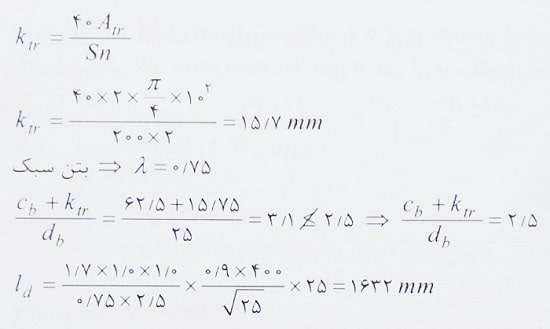 k_tr = ۴۰ A_tr / Sn
k_tr = ۴۰×۲×π/۴×۱۰^۲ / ۲۰۰×۲ = ۱۵/۷ mm
بتن سبک ⇒ λ = ۰/۷۵
c_b + k_tr / d_b = ۶۲/۵+۱۵/۷۵ / ۲۵ = ۳/۱ ≰ ۲/۵ ⇒ c_b + k_tr / d_b = ۲/۵
l_d = ۱/۷×۱/۰×۱/۰ / ۰/۷۵×۲/۵ × ۰/۹×۴۰۰ / √۲۵ × ۲۵ = ۱۶۳۲ mm